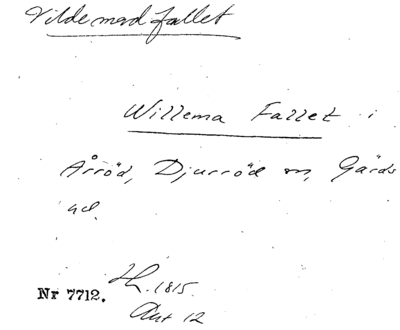 Vildemadfallet
Willema Fallet i
Årröd, Djurröd sn, Gärds
hd.
Hl. 1815.
Nr 7712.
Akt 12